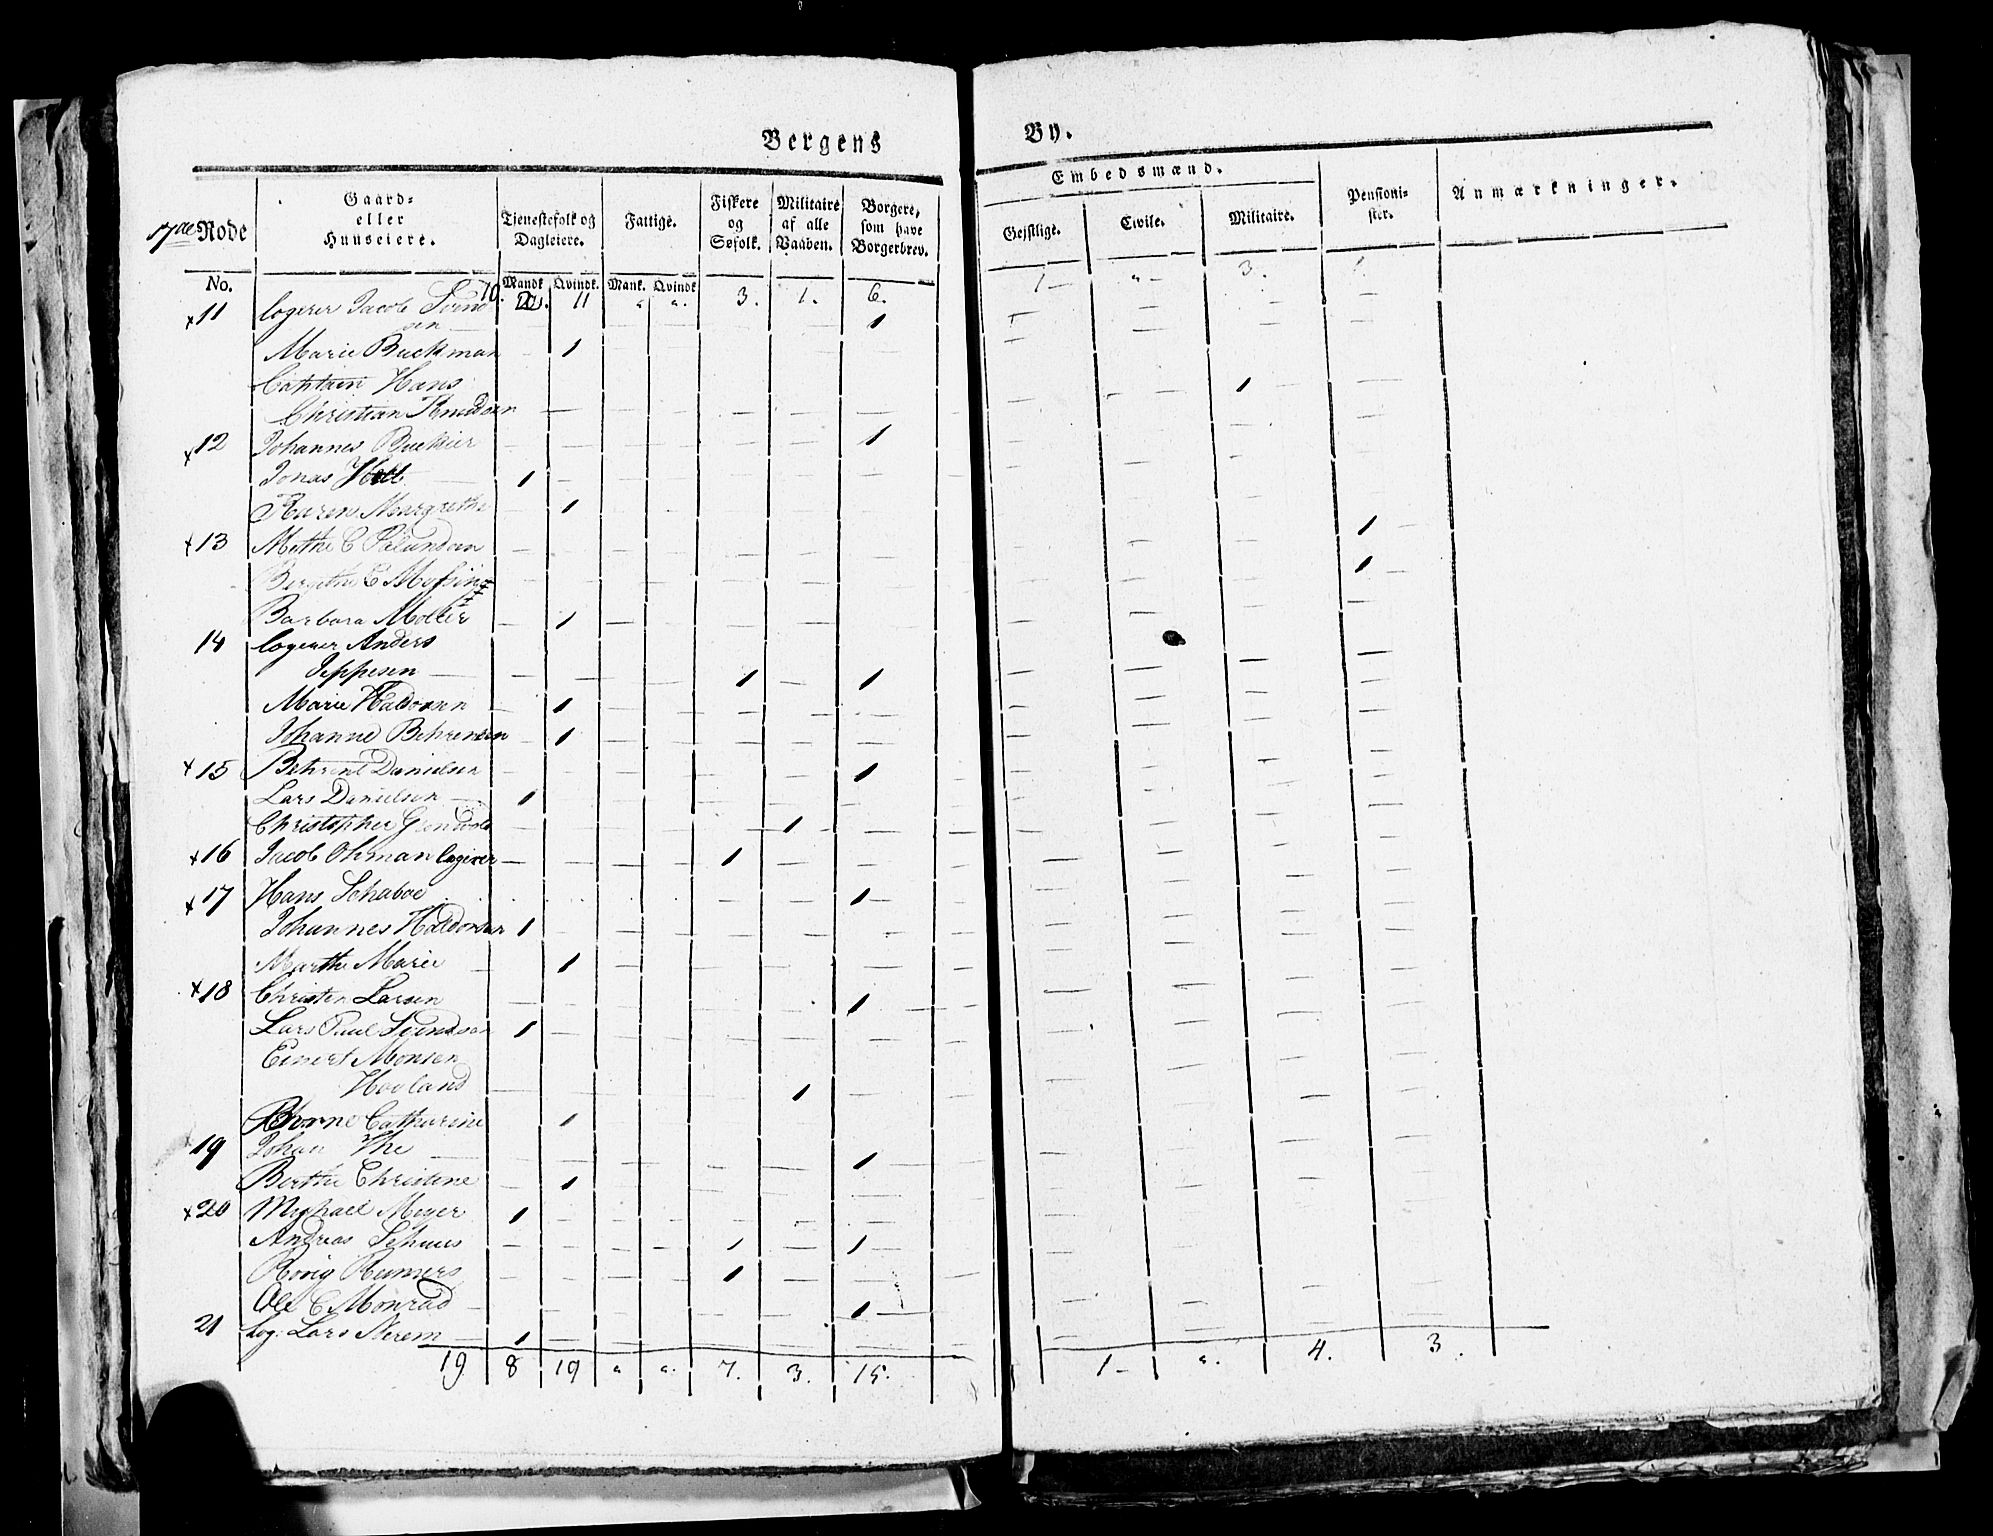 Bergens By.
17de Rode
Gaard= eller Huuseiere.
Tjenestefolk og Dagleiere.
Fattige.
Fiskere og Søfolk.
Militaire af alle Vaaben.
Borgere, som have Borgerbrev.
Embedsmænd.
Gejstlige.
Civile.
Militaire.
Pensioni- ster.
Anmærkninger.
No.
Mandk Qvindk. Mank. Qvindk
10. 11 " ". 3. 1. 6. 1 " 3. 1.
x 11 logerer Jacob Svend
sen — 1
Marie Buckman 1
Captain Hans
Christian Knudsen 1
x 12 Johannes 1
Jonas 1
Karen Margrethe 1
x 13 Methe C 1
C 1
Barbara Moller 1
14 logerer Anders
Jeppesen 1 1
Marie Haldorsen 1
Johanne Behrensen 1
x 15 Behrent Danielsen 1
Lars Danielsen 1
Christopher 1
x 16 Jacob Ohman logerer 1
x 17 Hans Schaboe 1
Johannes Haldorsen 1
Marthe Marie 1
x 18 Christen Larsen 1
Lars Paul Svendsen 1
Einert Monsen
Hovland 1
Catharine 1
19 Johan 1
Berthe Christine 1
x 20 Michael Meyer 1
Andreas 1 1
1
Ole C Monrad 1
21 Log: Lars Nerem 1
19 8 19 " ". 7. 3. 15. 1 — ". 4. 3.